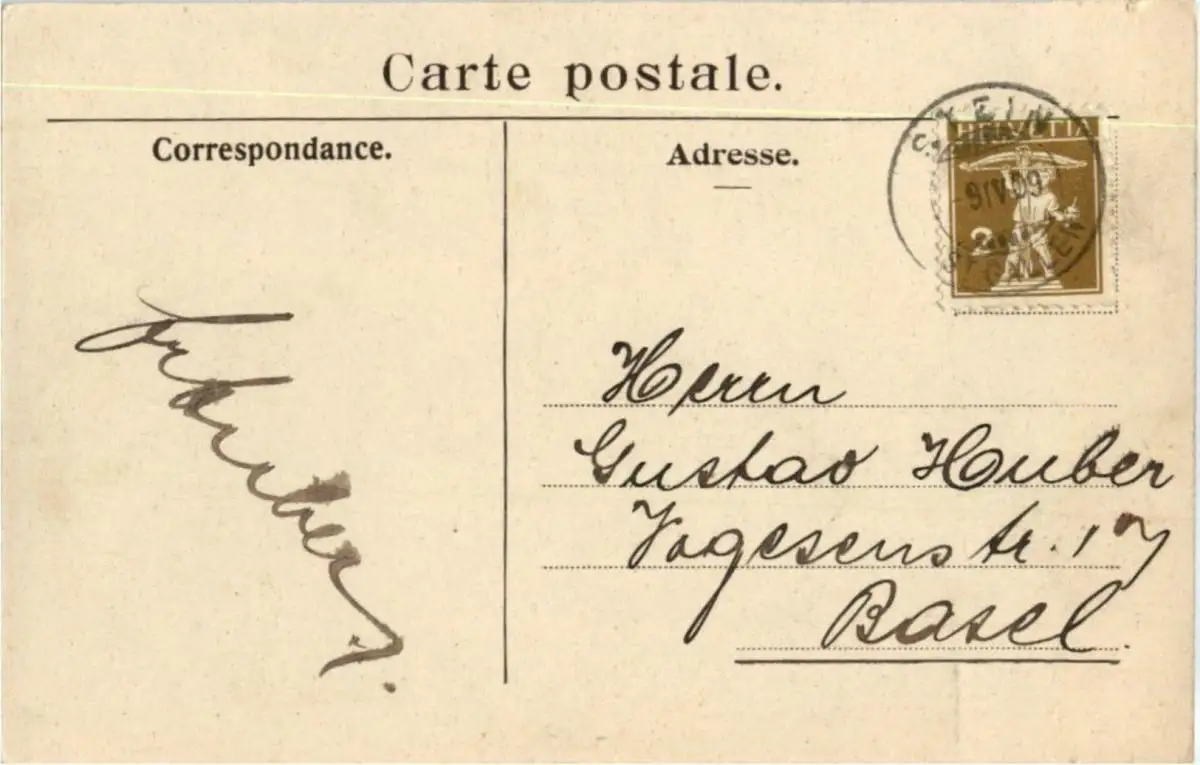 Carte postale.
Correspondance.
Adresse.
HELVETIA
2
STEIN
9 IV 09
GALLEN
Herrn
Gustav Huber
Vogesenstr. 17
Basel.